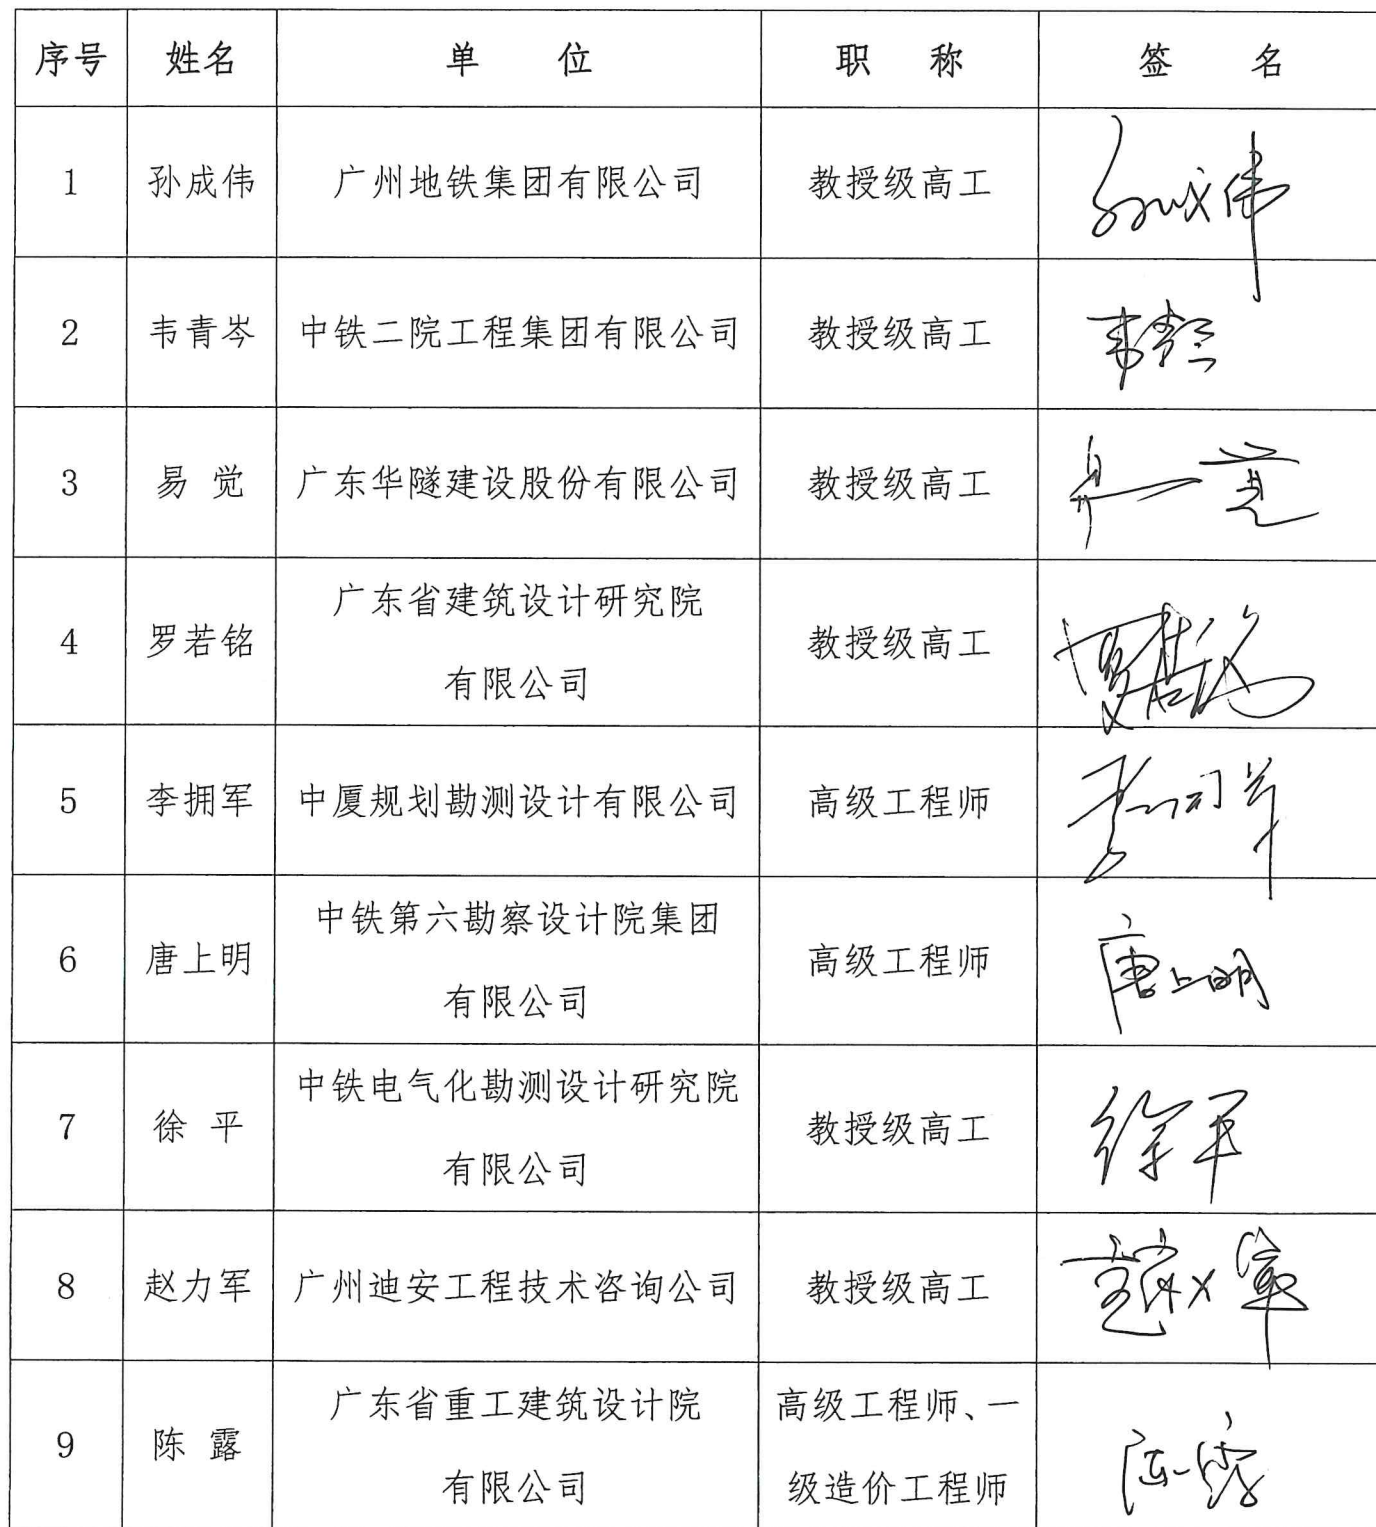 序号 姓名 单 位 职 称 签 名
1 孙成伟 广州地铁集团有限公司 教授级高工 孙成伟
2 韦青岑 中铁二院工程集团有限公司 教授级高工 韦青岑
3 易 觉 广东华隧建设股份有限公司 教授级高工 易觉
4 罗若铭 广东省建筑设计研究院
有限公司 教授级高工 罗若铭
5 李拥军 中厦规划勘测设计有限公司 高级工程师 李拥军
6 唐上明 中铁第六勘察设计院集团
有限公司 高级工程师 唐上明
7 徐 平 中铁电气化勘测设计研究院
有限公司 教授级高工 徐平
8 赵力军 广州迪安工程技术咨询公司 教授级高工 赵力军
9 陈 露 广东省重工建筑设计院
有限公司 高级工程师、一
级造价工程师 陈露